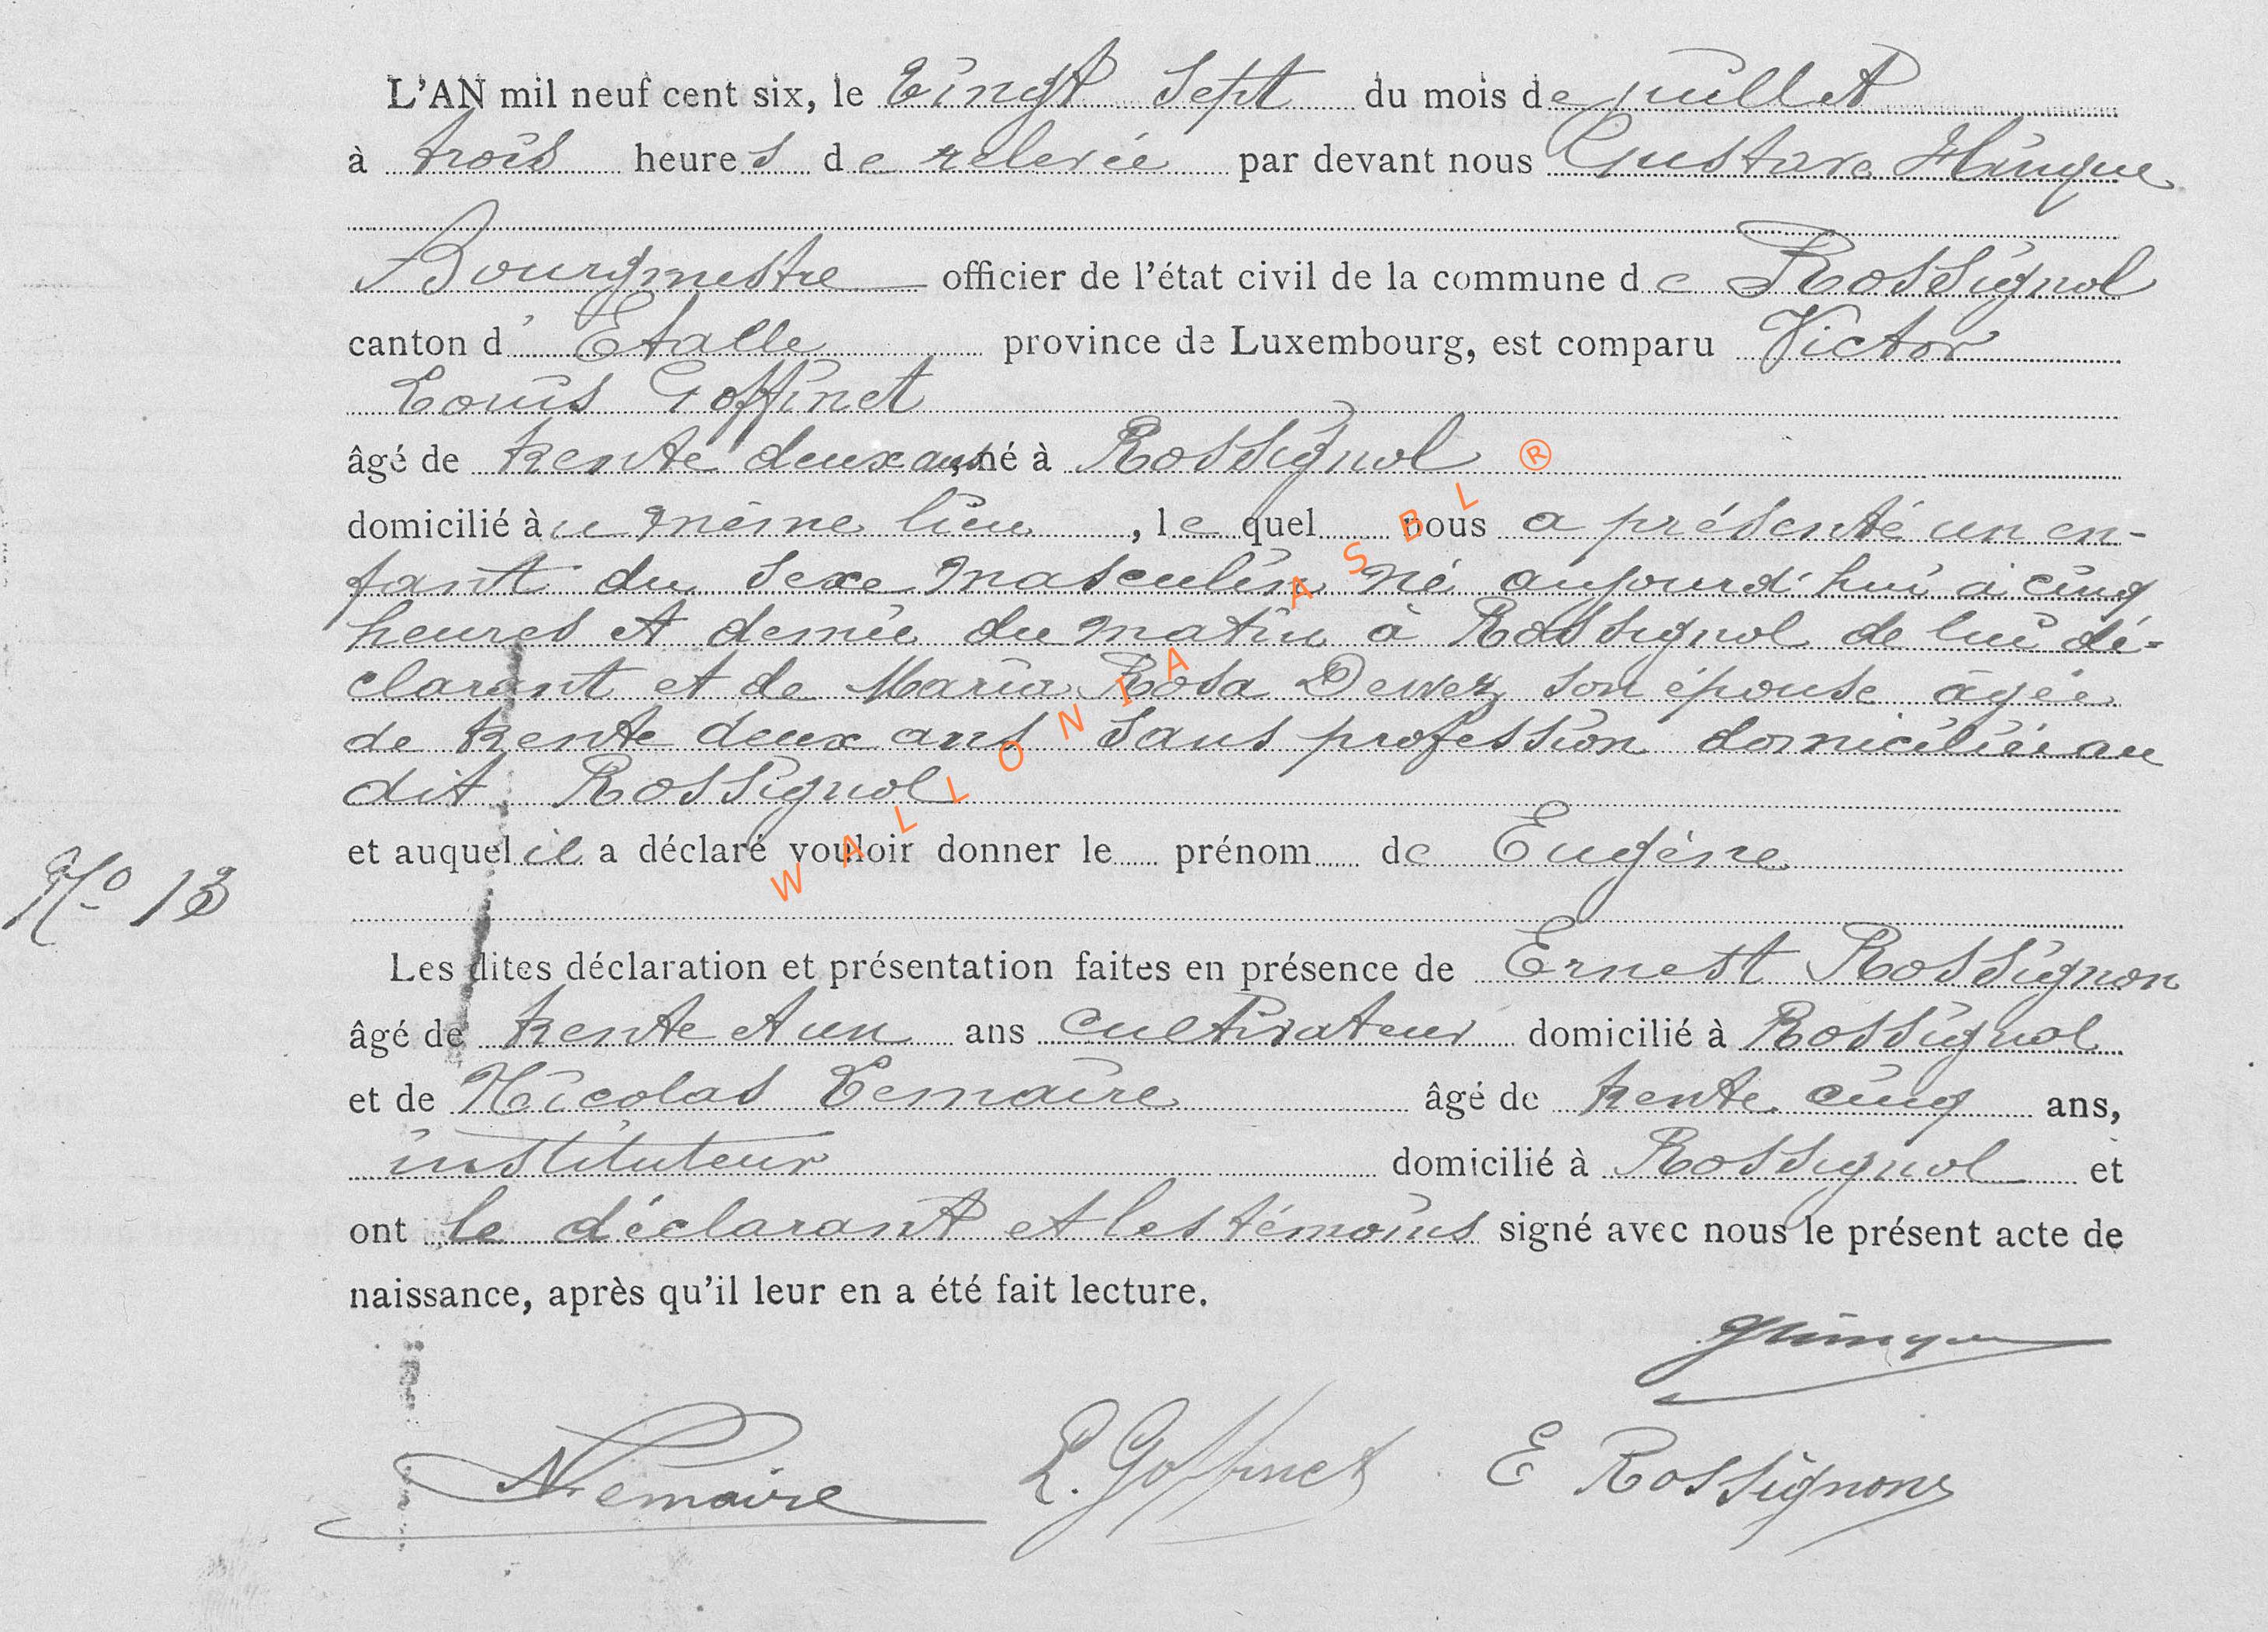 L'AN mil neuf cent six, le Vingt Sept du mois de juillet
à trois heures de relevée par devant nous Gustave
Bourgmestre officier de l'état civil de la commune de Rossignol
canton d'Etalle province de Luxembourg, est comparu Victor
Louis Goffinet
âgé de trente deux ans, né à Rossignol ®
domicilié au même lieu, lequel nous a présenté un en-
fant du sexe masculin né aujourd'hui à cinq
heures et demie du matin à Rossignol de lui dé-
clarant et de Maria Rosa Dewez son épouse âgée
de trente deux ans sans profession domiciliée au
dit Rossignol
WALLONIA ASBL
et auquel il a déclaré vouloir donner le prénom de Eugène
No 13
Les dites déclaration et présentation faites en présence de Ernest Rossignon
âgé de trente et un ans cultivateur domicilié à Rossignol
et de Nicolas Lemaire âgé de trente cinq ans,
instituteur domicilié à Rossignol et
ont le déclarant et les témoins signé avec nous le présent acte de
naissance, après qu'il leur en a été fait lecture.
NLemaire L. Goffinet E Rossignon